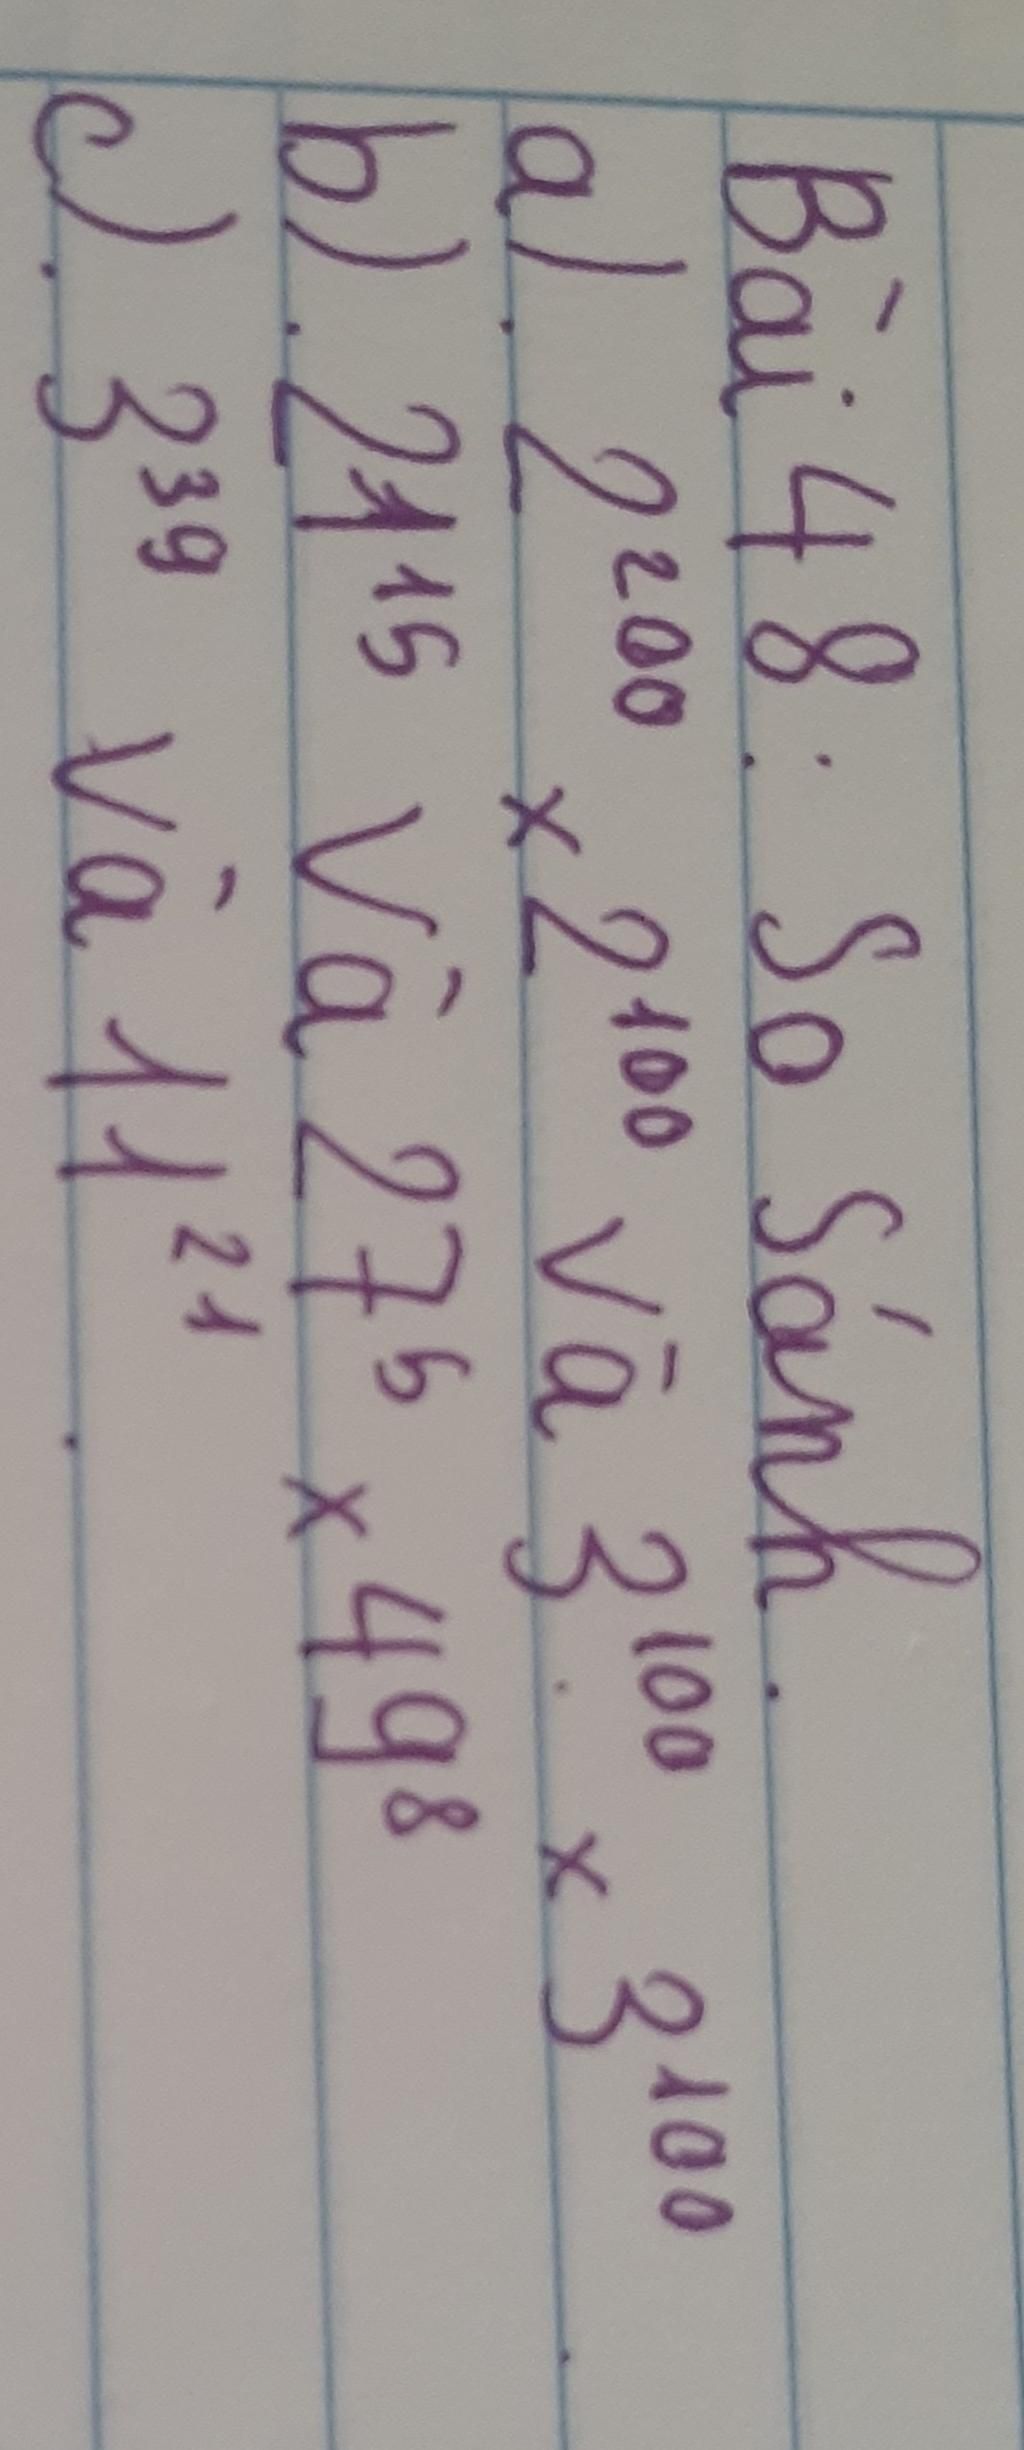 Bài 48: So Sánh.
a) 2²⁰⁰ x 2¹⁰⁰ Và 3¹⁰⁰ x 3¹⁰⁰
b) 21¹⁵ Và 27⁵ x 49⁸
c) 3³⁹ Và 11²¹